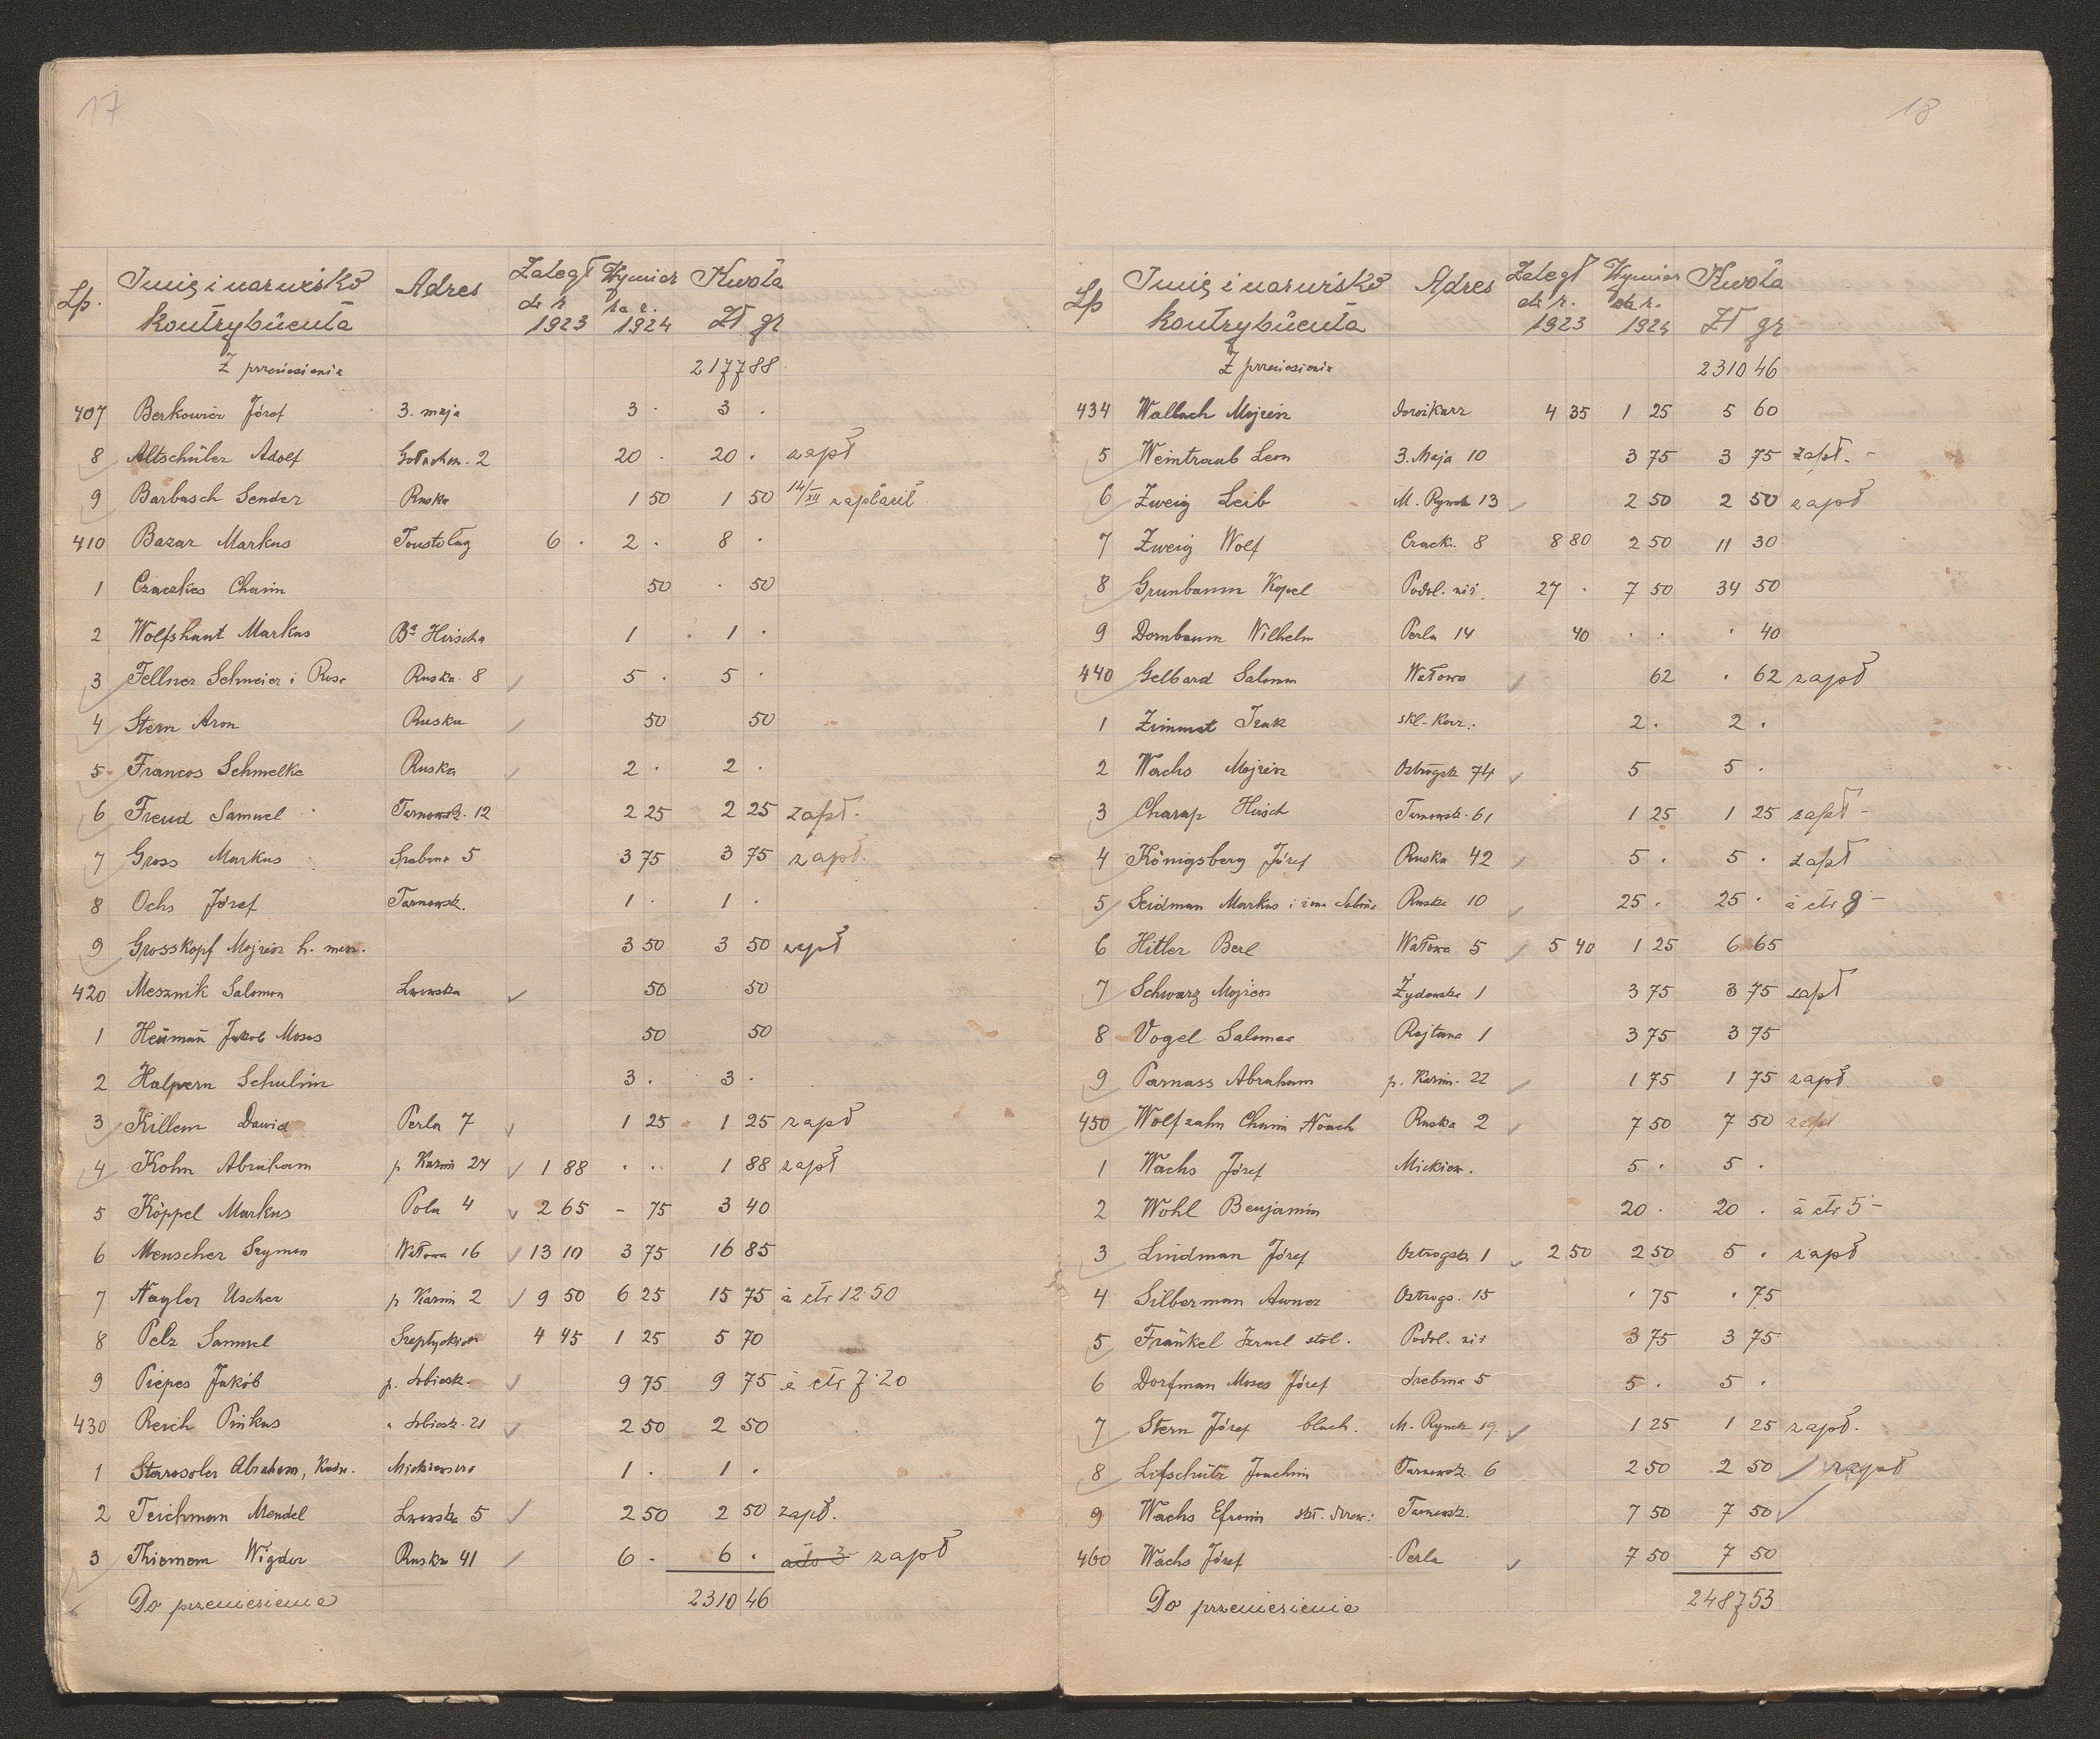 17
Lp. Imię i nazwisko kontrybüenta Adres Zaległ do r. 1923 Wymiar na r. 1924 Kwota Zł gr
Z przeniesienia 2177 88
407 Berkowicz Józef 3. maja 3 . 3 .
8 Altschüler Adolf Gołuchow. 2 20 . 20 . zapł
9 Barbasch Sender Ruska 1 50 1 50 14/XII zapłacił
410 Bazar Markus Toustoług 6 . 2 . 8 .
1 Czaczkes Chaim 50 . 50
2 Wolfshaut Markus Ba Hirscha 1 . 1 .
3 Fellner Schmeier i Rosa Ruska 8 5 . 5 .
4 Stern Aron Ruska 50 50
5 Francos Schmelke Ruska 2 . 2 .
6 Freud Samuel Tarnowsk. 12 2 25 2 25 zapł.
7 Gross Markus Srebrna 5 3 75 3 75 zapł.
8 Ochs Józef Tarnowsk. 1 . 1 .
9 Grosskopf Mojżesz h. 3 50 3 50 zapł
420 Mesznik Salomon Lwowska 50 50
1 Heüman Jakob Moses 50 50
2 Halpern Schulim 3 . 3 .
3 Killem Dawid Perla 7 1 25 1 25 zapł
4 Kohn Abraham p Kazim 24 1 88 . .. 1 88 zapł
5 Köppel Markus Pola 4 2 65 - 75 3 40
6 Menscher Szymon Wałowa 16 13 10 3 75 16 85
7 Nagler Uscher p Kazim 2 9 50 6 25 15 75 à ctr 12.50
8 Pelz Samuel Szeptyckich 4 45 1 25 5 70
9 Piepes Jakób p. Sobiesk. 9 75 9 75 à ctr 7.20
430 Reich Pinkas " Sobiesk. 21 2 50 2 50
1 Starosoler Abraham, Mickiewicza 1 . 1 .
2 Teichman Mendel Lwowska 5 2 50 2 50 zapł.
3 Thiemem Wigdor Ruska 41 6 . 6 . zapł
Do przeniesienia 2310 46
18
Lp Imię i nazwisko kontrybüenta Adres Zaległ do r. 1923 Wymiar na r. 1924 Kwota Zł gr
Z przeniesienia 2310 46
434 Wallach Mojżesz dorożkarz 4 35 1 25 5 60
5 Weintraub Leon 3. Maja 10 3 75 3 75 zapł. -
6 Zweig Leib M. Rynek 13 2 50 2 50 zapł
7 Zweig Wolf Czack. 8 8 80 2 50 11 30
8 Grunbaum Kopel Podol. niż. 27 . 7 50 34 50
9 Dornbaum Wilhelm Perla 14 40 . . . 40
440 Gelbard Salomon Wałowa 62 . 62 zapł
1 Zimmet Izak skl. Korz. 2 . 2 .
2 Wachs Mojżesz Ostrogsk 74 5 5 .
3 Charap Hirsch Tarnowsk. 61 1 25 1 25 zapł -
4 Königsberg Józef Ruska 42 5 . 5 . zapł
5 Seidman Markus i żona Sabina Ruska 10 25 . 25 . à ctr 8 -
6 Hitler Berl Wałowa 5 5 40 1 25 6 65
7 Schwarz Mojżesz Żydowska 1 3 75 3 75 zapł
8 Vogel Salomea Rejtana 1 3 75 3 75
9 Parnass Abraham p. Kazim. 22 1 75 1 75 zapł.
450 Wolfzahn Chaim Noach Ruska 2 7 50 7 50 zapł
1 Wachs Józef Mickiew. 5 . 5 .
2 Wohl Benjamin 20 . 20 . à ctr 5 -
3 Lindman Józef Ostrogsk. 1 2 50 2 50 5 . zapł
4 Silberman Awner Ostrogs. 15 . 75 . 75
5 Fränkel Izrael stol. Podol. niż 3 75 3 75
6 Dorfman Moses Józef Srebrna 5 5 . 5 .
7 Stern Józef blach. M. Rynek 19. 1 25 1 25 zapł.
8 Lifschütz Joachim Tarnowsk. 6 2 50 2 50 zapł
9 Wachs Efroim skł. drzew.: Tarnowsk. 7 50 7 50
460 Wachs Józef Perla 7 50 7 50
Do przeniesienia 2487 53